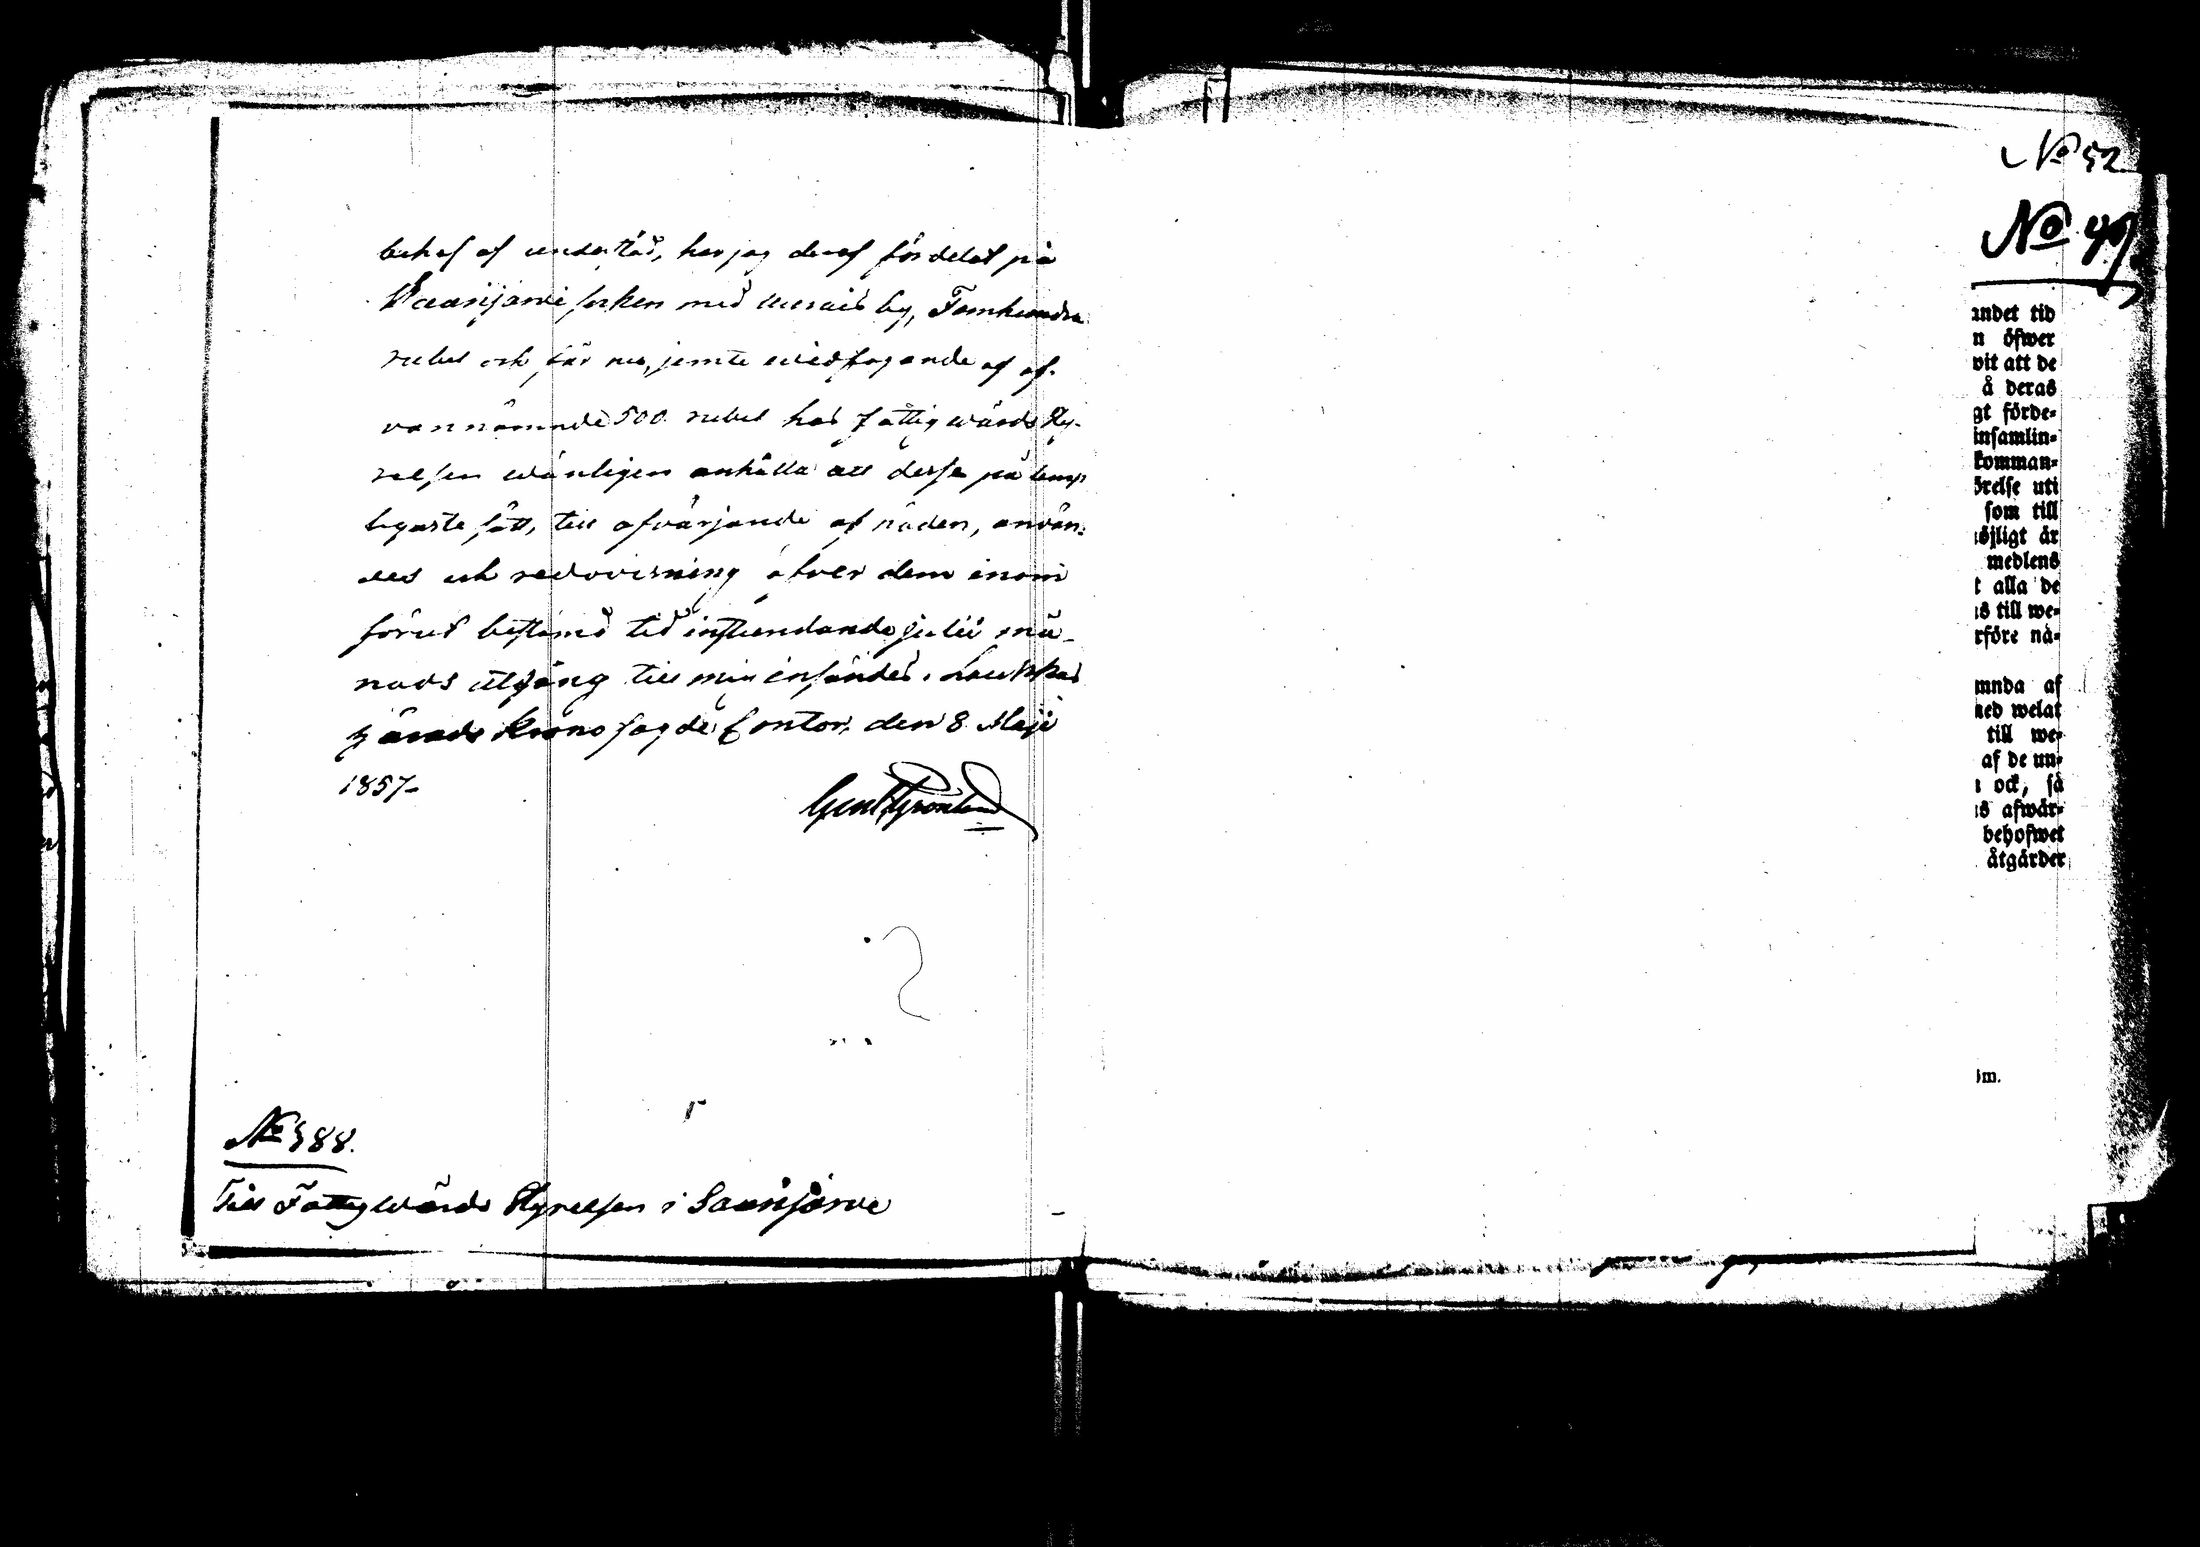 behof af understöd, har jag deraf fördelat på
Saarijärvi socken med Uurais by, Femhundra
rubel och får nu, jemte widfogande af of-
vannämnde 500 rubel hos Fattigwårds Sty-
relsen wänligen anhålla att desse på lämp-
ligaste sätt, till afvärjande af nöden, använ-
des och redovisning öfver dem inom
förut bestämd tid instundande julii må-
nads utgång till mig insändes. Laukkas
härads Kronofogde Contor, den 8 Maji
1857.
Gust Grönlund
No 388.
Till Fattigwårds Styrelsen i Saarijärvi
No 52
No 49.
andet tid
n öfwer
vit att de
å deras
gt förde-
insamlin-
komman-
örelse uti
som till
öjligt är
medlens
t alla de
s till we-
rföre nå-
mnda af
ned welat
till we-
af de un-
ock, så
s afwär-
behofwet
åtgärder
öm.